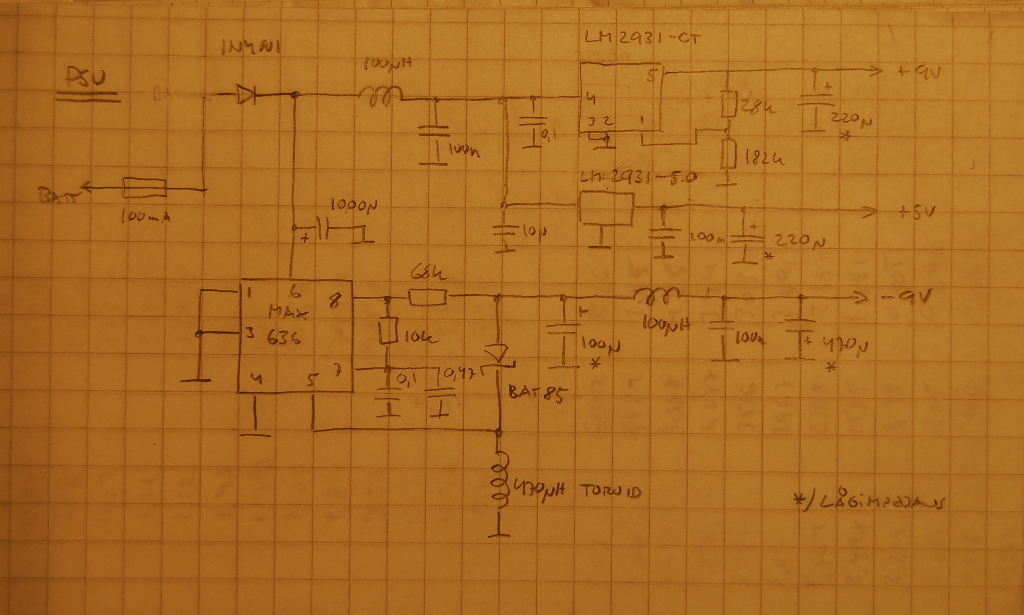 LM2931-CT
1N4001
PSU
100µH
5
+9V
4
28k
3 2
1
0,1
100n
220µ
*
182k
BATT
100mA
LM2931-5.0
1000µ
+
+5V
10µ
100n
220µ
*
68k
1
6
8
-9V
MAX
636
3
10k
100µH
100µ
*
100n
470µ
*
7
0,1
0,47
4
5
BAT85
470µH TOROID
*/ LÅGIMPEDANS